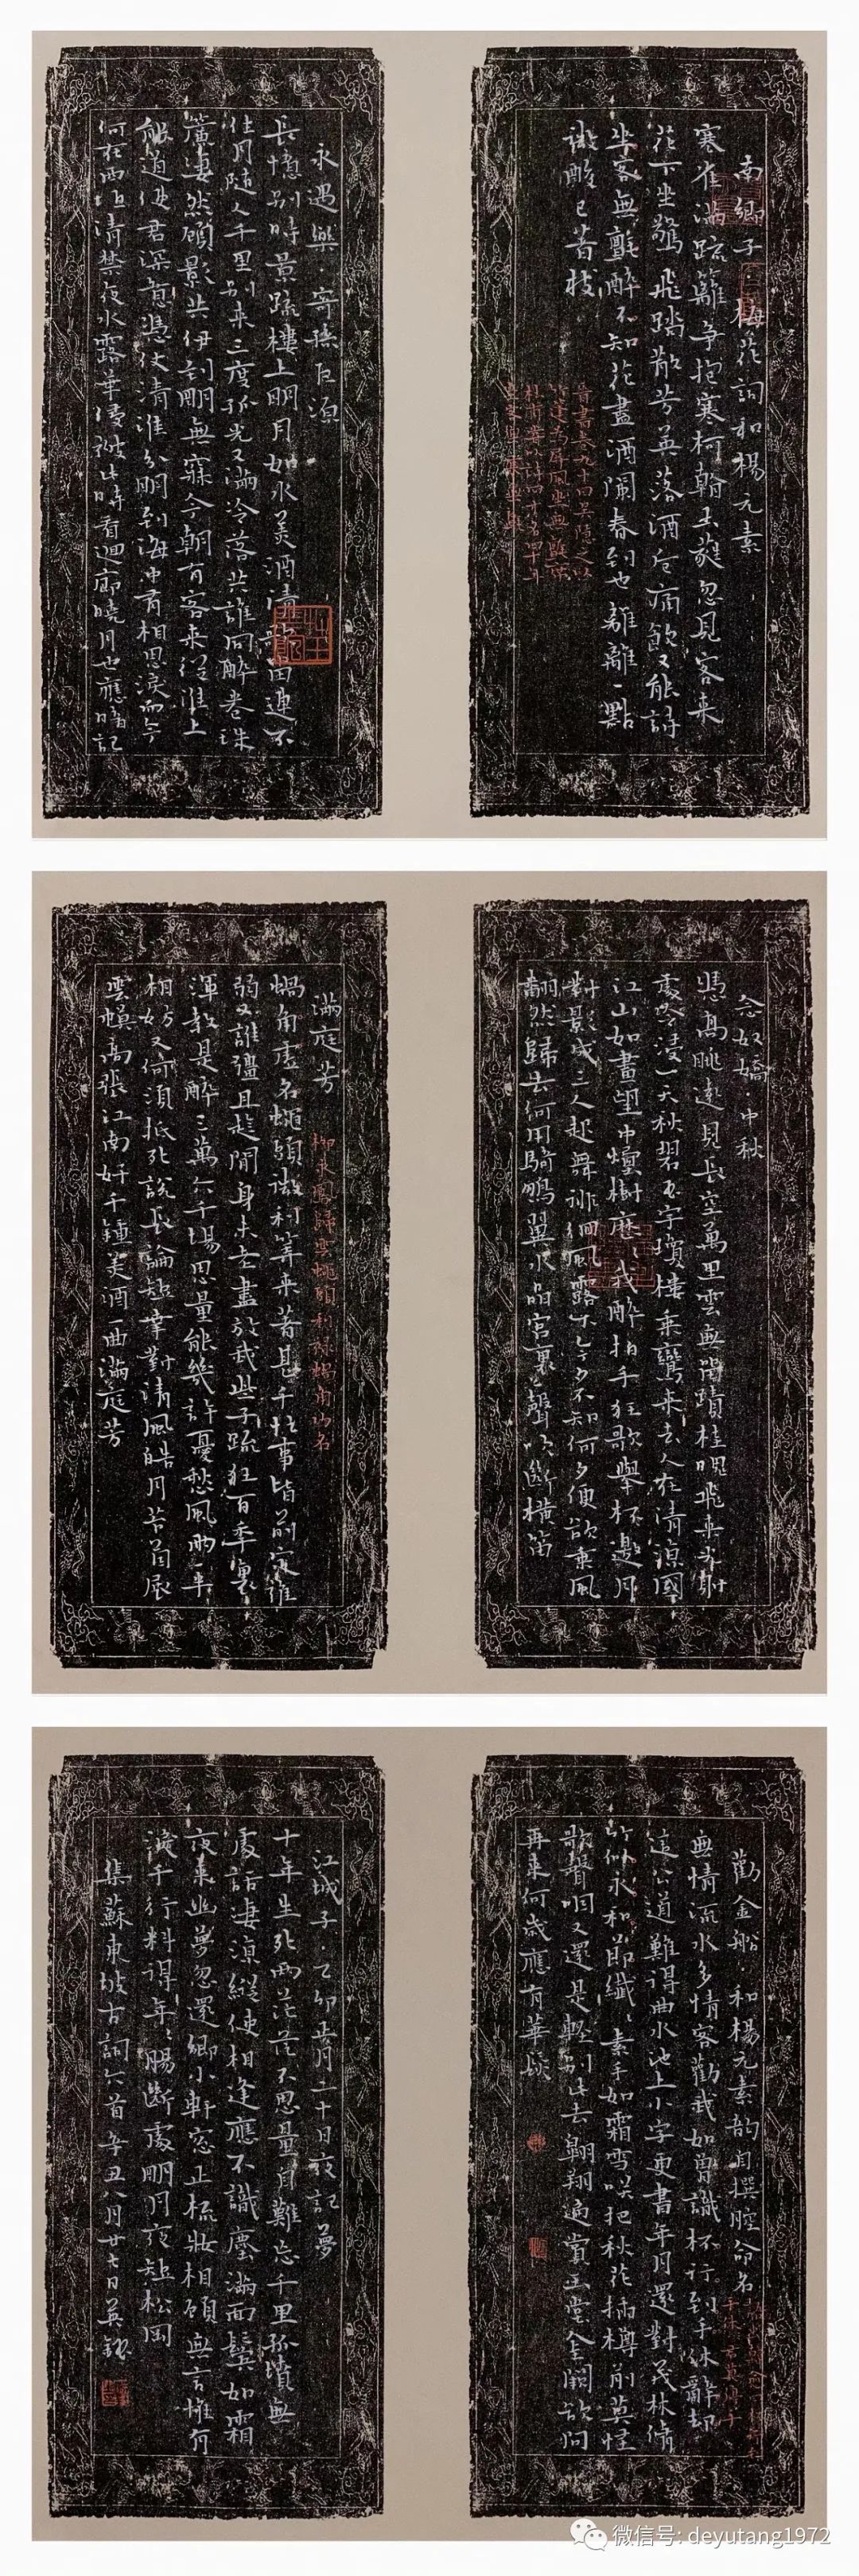 南鄉子·梅花詞和楊元素
寒雀滿疏籬爭抱寒柯翰玉蕤忽見客來
花下坐驚飛踏散芳英落酒卮痛飲又能詩
坐客無氈醉不知花盡酒闌春到也離離一點
微酸已著枝
晉書卷九十四吳隱之以
竹篷為屏風坐無氈席
永遇樂·寄孫巨源
長憶別時景疏樓上明月如水美酒清歌留連不
住月隨人千里別來三度孤光又滿冷落共誰同醉卷珠
簾淒然顧影共伊到明無寐今朝有客來從淮上
能道使君深意憑仗清淮分明到海中有相思淚而今
何在西垣清禁夜永露華侵被此時看迴廊曉月也應暗記
念奴嬌·中秋
憑高眺遠見長空萬里雲無留蹟桂魄飛來光射
處冷浸一天秋碧玉宇瓊樓乘鸞來去人在清涼國
江山如畫望中煙樹歷歷我醉拍手狂歌舉杯邀月
對影成三人起舞徘徊風露下今夕不知何夕便欲乘風
翻然歸去何用騎鵬翼水晶宮裏一聲吹斷橫笛
滿庭芳
蝸角虛名蠅頭微利算來著甚干忙事皆前定誰
弱又誰彊且趁閒身未老盡放我些子疏狂百年裏
渾教是醉三萬六千場思量能幾許憂愁風雨一半
相妨又何須抵死說長論短幸對清風皓月苔茵展
雲幙高張江南好千鍾美酒一曲滿庭芳
勸金船·和楊元素韵自撰腔命名
無情流水多情客勸我如曾識杯行到手休辭却
這公道難得曲水池上小字更書年月還對茂林脩
竹似永和節纖纖素手如霜雪笑把秋花插樽前莫怪
歌聲咽又還是輕別此去翱翔遍賞玉堂金闕欲問
再來何歲應有華髮
江城子·乙卯正月二十日夜記夢
十年生死兩茫茫不思量自難忘千里孤墳無
處話淒涼縱使相逢應不識塵滿面鬢如霜
夜來幽夢忽還鄉小軒窓正梳妝相顧無言惟有
淚千行料得年年腸斷處明月夜短松岡
集蘇東坡古詞六首辛丑八月廿七日英銀
微信号: deyutang1972